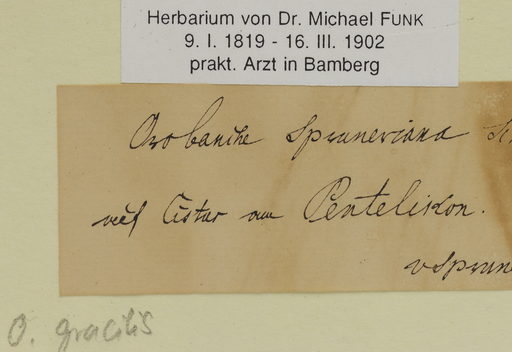 Herbarium von Dr. Michael FUNK
9. I. 1819 - 16. III. 1902
prakt. Arzt in Bamberg
Orobanche Spruneriana
auf Cistus am Pentelikon.
vSprun
O. gracilis